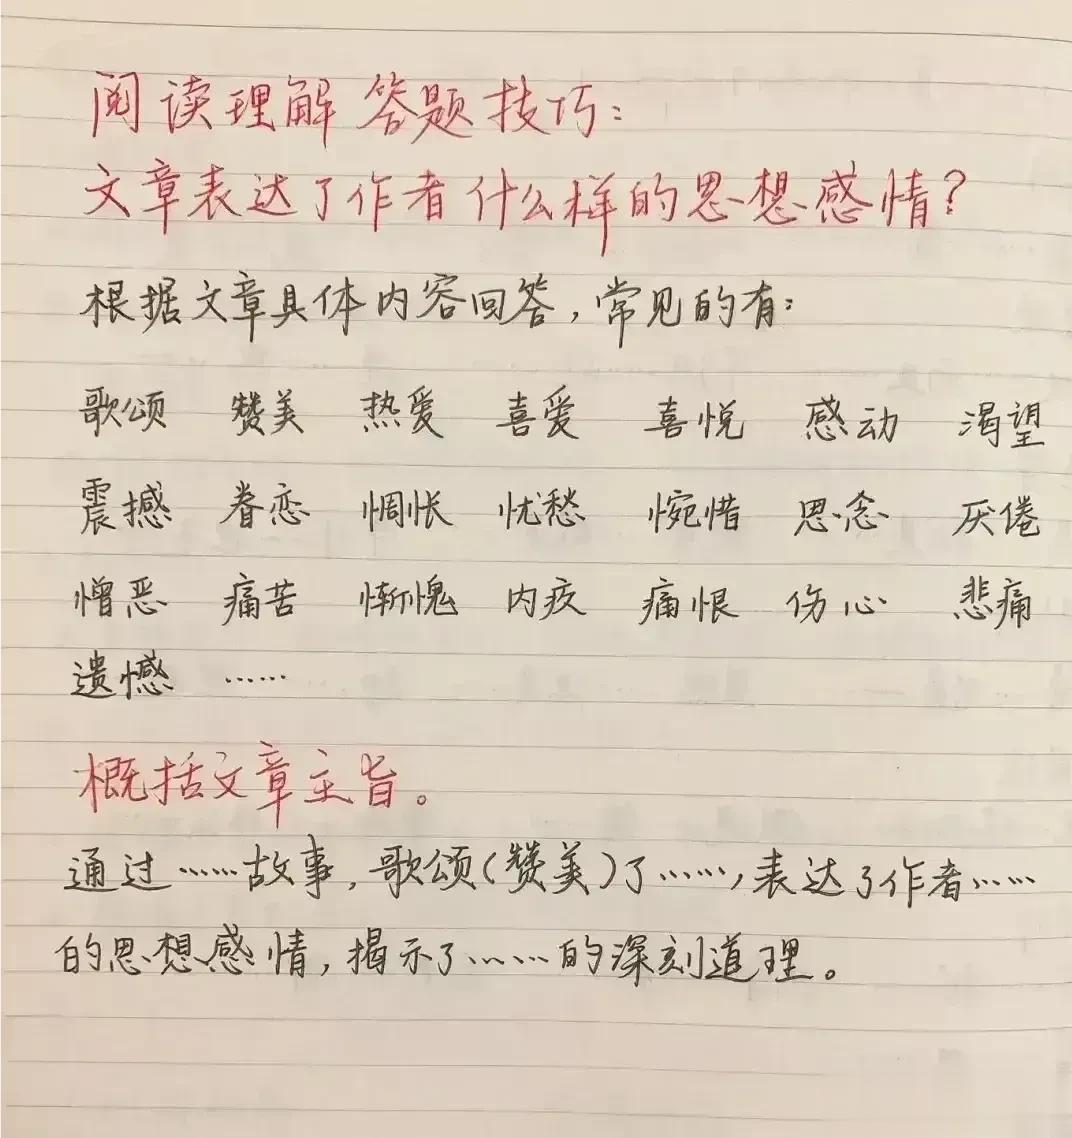 阅读理解答题技巧：
文章表达了作者什么样的思想感情？
根据文章具体内容回答，常见的有：
歌颂 赞美 热爱 喜爱 喜悦 感动 渴望
震撼 眷恋 惆怅 忧愁 惋惜 思念 厌倦
憎恶 痛苦 惭愧 内疚 痛恨 伤心 悲痛
遗憾 ……
概括文章主旨。
通过……故事，歌颂（赞美）了……，表达了作者……
的思想感情，揭示了……的深刻道理。